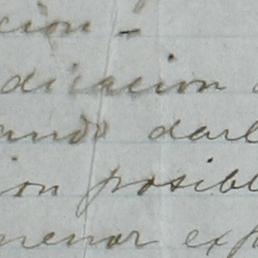 cion -
dicacion
ando darl
ion posibl
menor exp